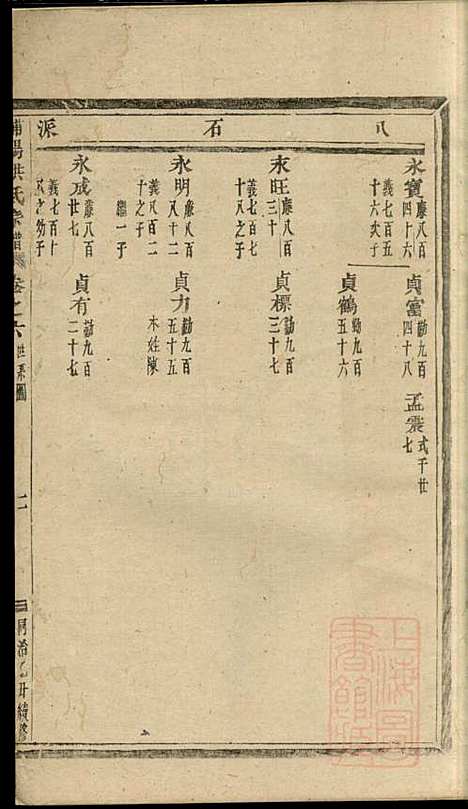 八石派
永寶 廉八百四十六 義七百五十六次子
貞富 勛九百四十八
孟震 式千廿七
貞鶴 勛九百五十六
永旺 廉八百三十 義七百七十八之子
貞標 勛九百三十七
永明 廉八百八十二 義八百二十之子 繼一子
貞力 勛九百五十五 本姓陳
永成 廉八百廿七 義七百十八之幼子
貞有 勛九百二十七
浦陽洪氏宗譜 卷之六 世系圖 二 同治乙丑續修
上海圖書館藏